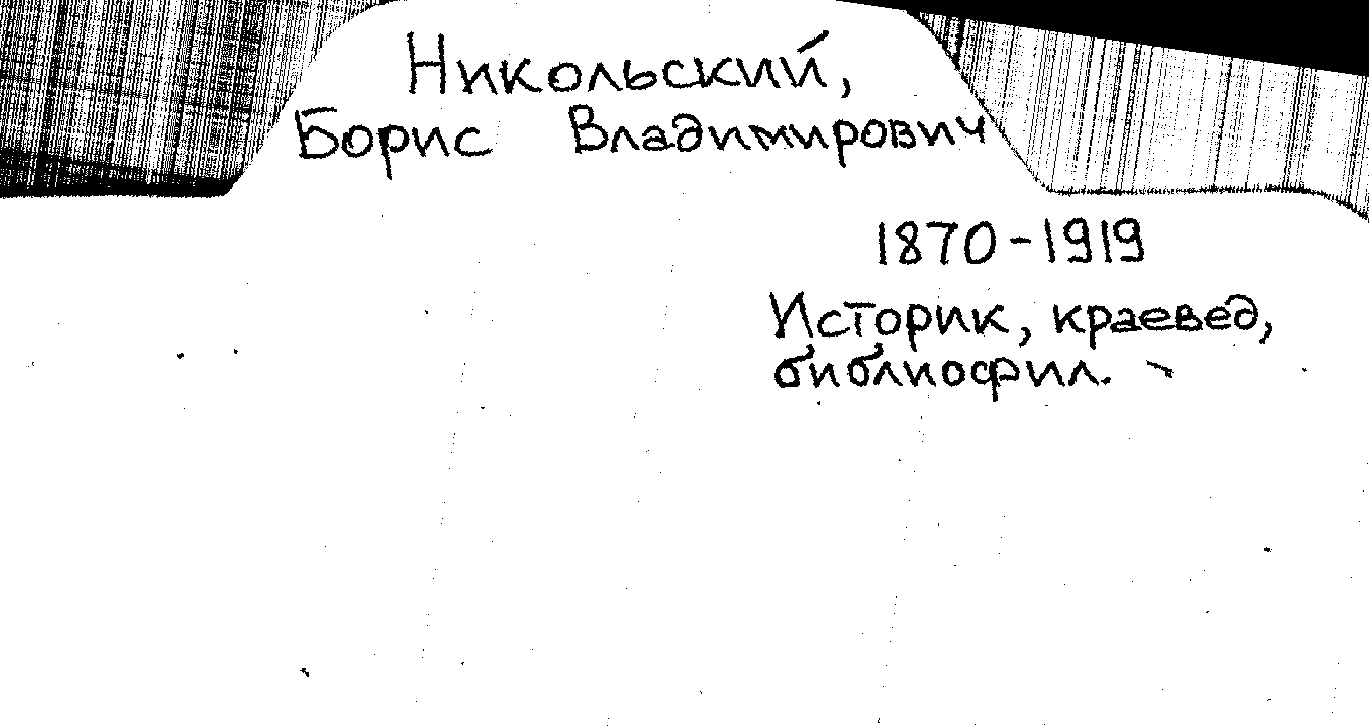 Никольский,
Борис Владимирович
1870-1919
Историк, краевед,
библиофил.